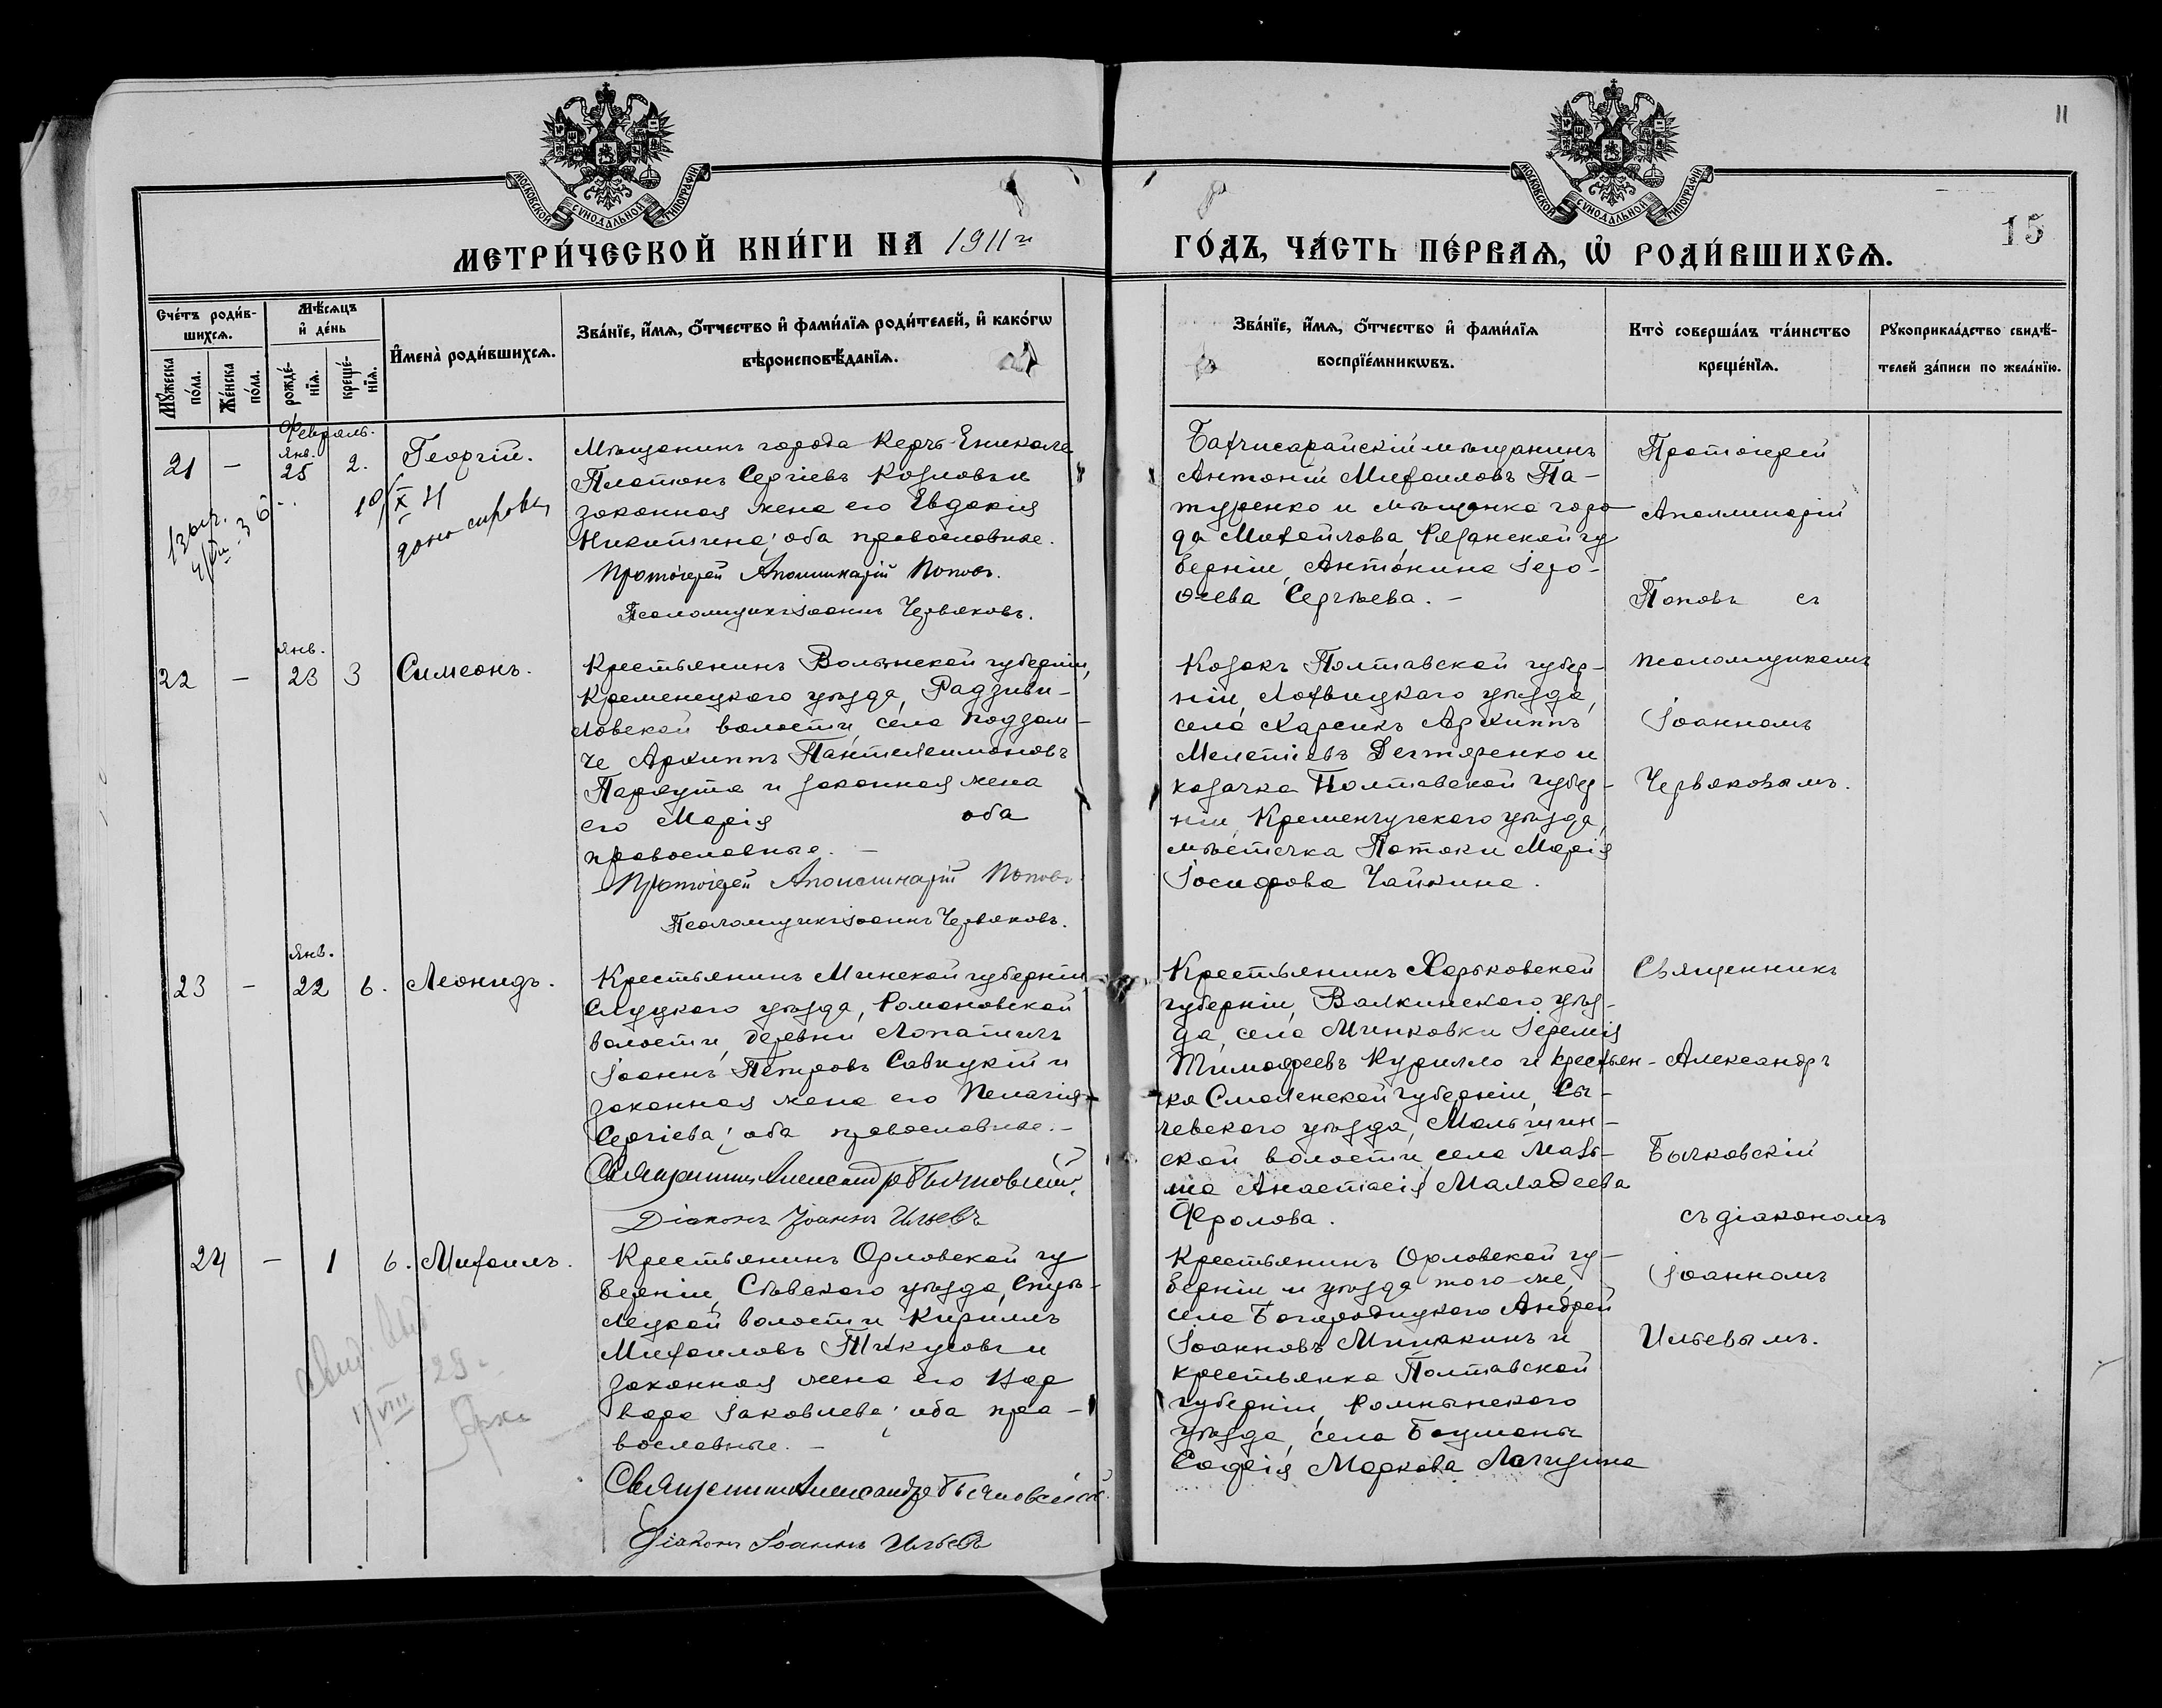 11
МОСКОВСКОЙ СѴНОДАЛЬНОЙ ТИПОГРАФІИ
МОСКОВСКОЙ СѴНОДАЛЬНОЙ ТИПОГРАФІИ
15
МЕТРИ́ЧЕСКОЙ КНИ́ГИ НА 1911й
ГО́ДЪ, ЧА́СТЬ ПЕ́РВАѦ, Ѡ РОДИ́ВШИХСѦ.
Сче́тъ роди́в-
шихсѧ.
Мꙋ́жеска по́ла.
Же́нска по́ла.
Мѣ́сѧцъ
и҆ де́нь
рожде́-
нїѧ.
креще́-
нїѧ.
И҆мена̀ роди́вшихсѧ.
Зва́нїе, и҆́мѧ, о҆́тчество и҆ фами́лїѧ роди́телей, и҆ како́гѡ
вѣроисповѣ́данїѧ.
Зва́нїе, и҆́мѧ, о҆́тчество и҆ фами́лїѧ
воспрїе́мникѡвъ.
Кто̀ соверша́лъ та́инство
креще́нїѧ.
Рꙋкоприкла́дство свидѣ́-
телей за́писи по жела́нїю.
Февраль.
21
–
Янв.
25
2.
Георгій.
Мѣщанинъ города Керчь-Еникала
Платонъ Сергіевъ Козловъ и
законная жена его Евдокія
Никитина; оба православные.
Протоіерей Аполлинарій Поповъ.
Псаломщикъ Іоаннъ Червяковъ.
Бахчисарайскій мѣщанинъ
Антоній Михаиловъ Па-
туренко и мѣщанка горо
да Михайлова, Рязанской гу
берніи, Антонина Іеро-
ѳеева Сергѣева. –
Протоіерей
Аполлинарій
Поповъ съ
псаломщикомъ
Іоанномъ
Червяковымъ.
22
–
Янв.
23
3
Симеонъ.
Крестьянинъ Волынской губерніи,
Кременецкаго уѣзда, Радзиви-
ловской волости, села Поддам-
че Архиппъ Пантелеимоновъ
Парахута и законная жена
его Марія оба
православные. –
Протоіерей Аполлинарій Поповъ
Псаломщикъ Іоаннъ Червяковъ.
Козакъ Полтавской губер-
ніи, Лохвицкаго уѣзда,
села Харсикъ Архиппъ
Мелетіевъ Дегтяренко и
козачка Полтавской губер-
ніи, Кременчугскаго уѣзда,
мѣстечка Потоки Марія
Іосифова Чайкина.
23
–
Янв.
22
6.
Леонидъ.
Крестьянинъ Минской губерніи
Слуцкаго уѣзда, Романовской
волости, деревни Лопатичъ
Іоаннъ Петровъ Савицкій и
законная жена его Пелагія
Сергіева; оба православные. –
Священникъ Александръ Бычковскій
Діаконъ Іоаннъ Ильевъ
Крестьянинъ Харьковской
губерніи, Валкинскаго уѣз-
да, села Минковки Іеремія
Тимоѳеевъ Курилло и крестьян-
ка Смоленской губерніи, Сы-
чевскаго уѣзда,
ской волости, села
Анастасія
Фролова.
Священникъ
Александръ
Бычковскій
съ діакономъ
Іоанномъ
Ильевымъ.
24
–
1
6.
Михаилъ.
Крестьянинъ Орловской гу
берніи, Сѣвскаго уѣзда,
волости Кириллъ
Михаиловъ Пикусовъ и
законная жена его Вар
вара Іаковлева; оба пра-
вославные. –
Священникъ Александръ Бычковскій
Діаконъ Іоаннъ Ильевъ
Крестьянинъ Орловской гу-
берніи и уѣзда того-же,
села Богородицкаго Андрей
Іоанновъ Минакинъ и
крестьянка Полтавской
губерніи, Роменскаго
уѣзда, села Бацманы
Софія Маркова Лагирина